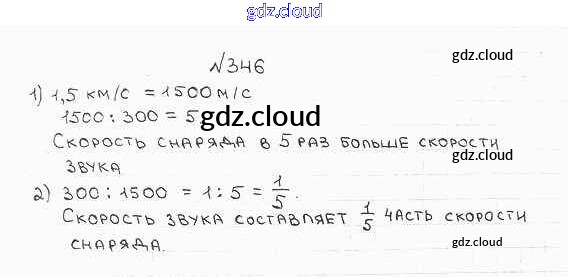 gdz.cloud
№346
gdz.cloud
1) 1,5 км/с = 1500 м/с
1500 : 300 = 5
gdz.cloud
Скорость снаряда в 5 раз больше скорости
звука
gdz.cloud
2) 300 : 1500 = 1 : 5 = 1/5.
Скорость звука составляет 1/5 часть скорости
снаряда.
gdz.cloud